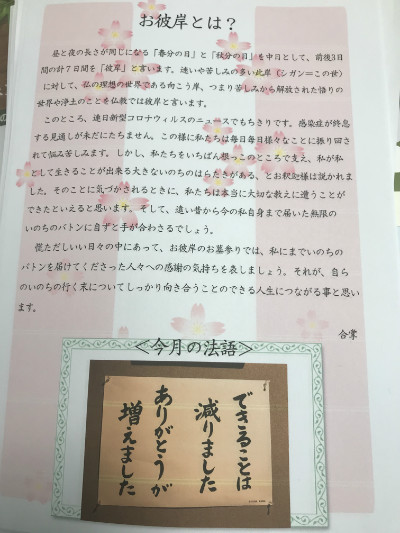 お彼岸とは？
昼と夜の長さが同じになる「春分の日」と「秋分の日」を中日として、前後3日
間の計７日間を「彼岸」と言います。迷いや苦しみの多い此岸（シガン＝この世）
に対して、私の理想の世界である向こう岸、つまり苦しみから解放された悟りの
世界や浄土のことを仏教では彼岸と言います。
このところ、連日新型コロナウィルスのニュースでもちきりです。感染症が終息
する見通しが未だにたちません。この様に私たちは毎日毎日様々なことに振り回さ
れて悩み苦しみます。しかし、私たちをいちばん根っこのところで支え、私が私
として生きることが出来る大きないのちのはたらきがある、とお釈迦様は説かれま
した。そのことに気づかされるときに、私たちは本当に大切な教えに遭うことが
できたといえると思います。そして、遠い昔から今の私自身まで届いた無限の
いのちのバトンに自ずと手が合わさるでしょう。
慌ただしいい日々の中にあって、お彼岸のお墓参りでは、私にまでいのちの
バトンを届けてくださった人々への感謝の気持ちを表しましょう。それが、自ら
のいのちの行く末についてしっかり向き合うことのできる人生につながる事と思い
ます。
合掌
＜今月の法語＞
できることは
減りました
ありがとうが
増えました